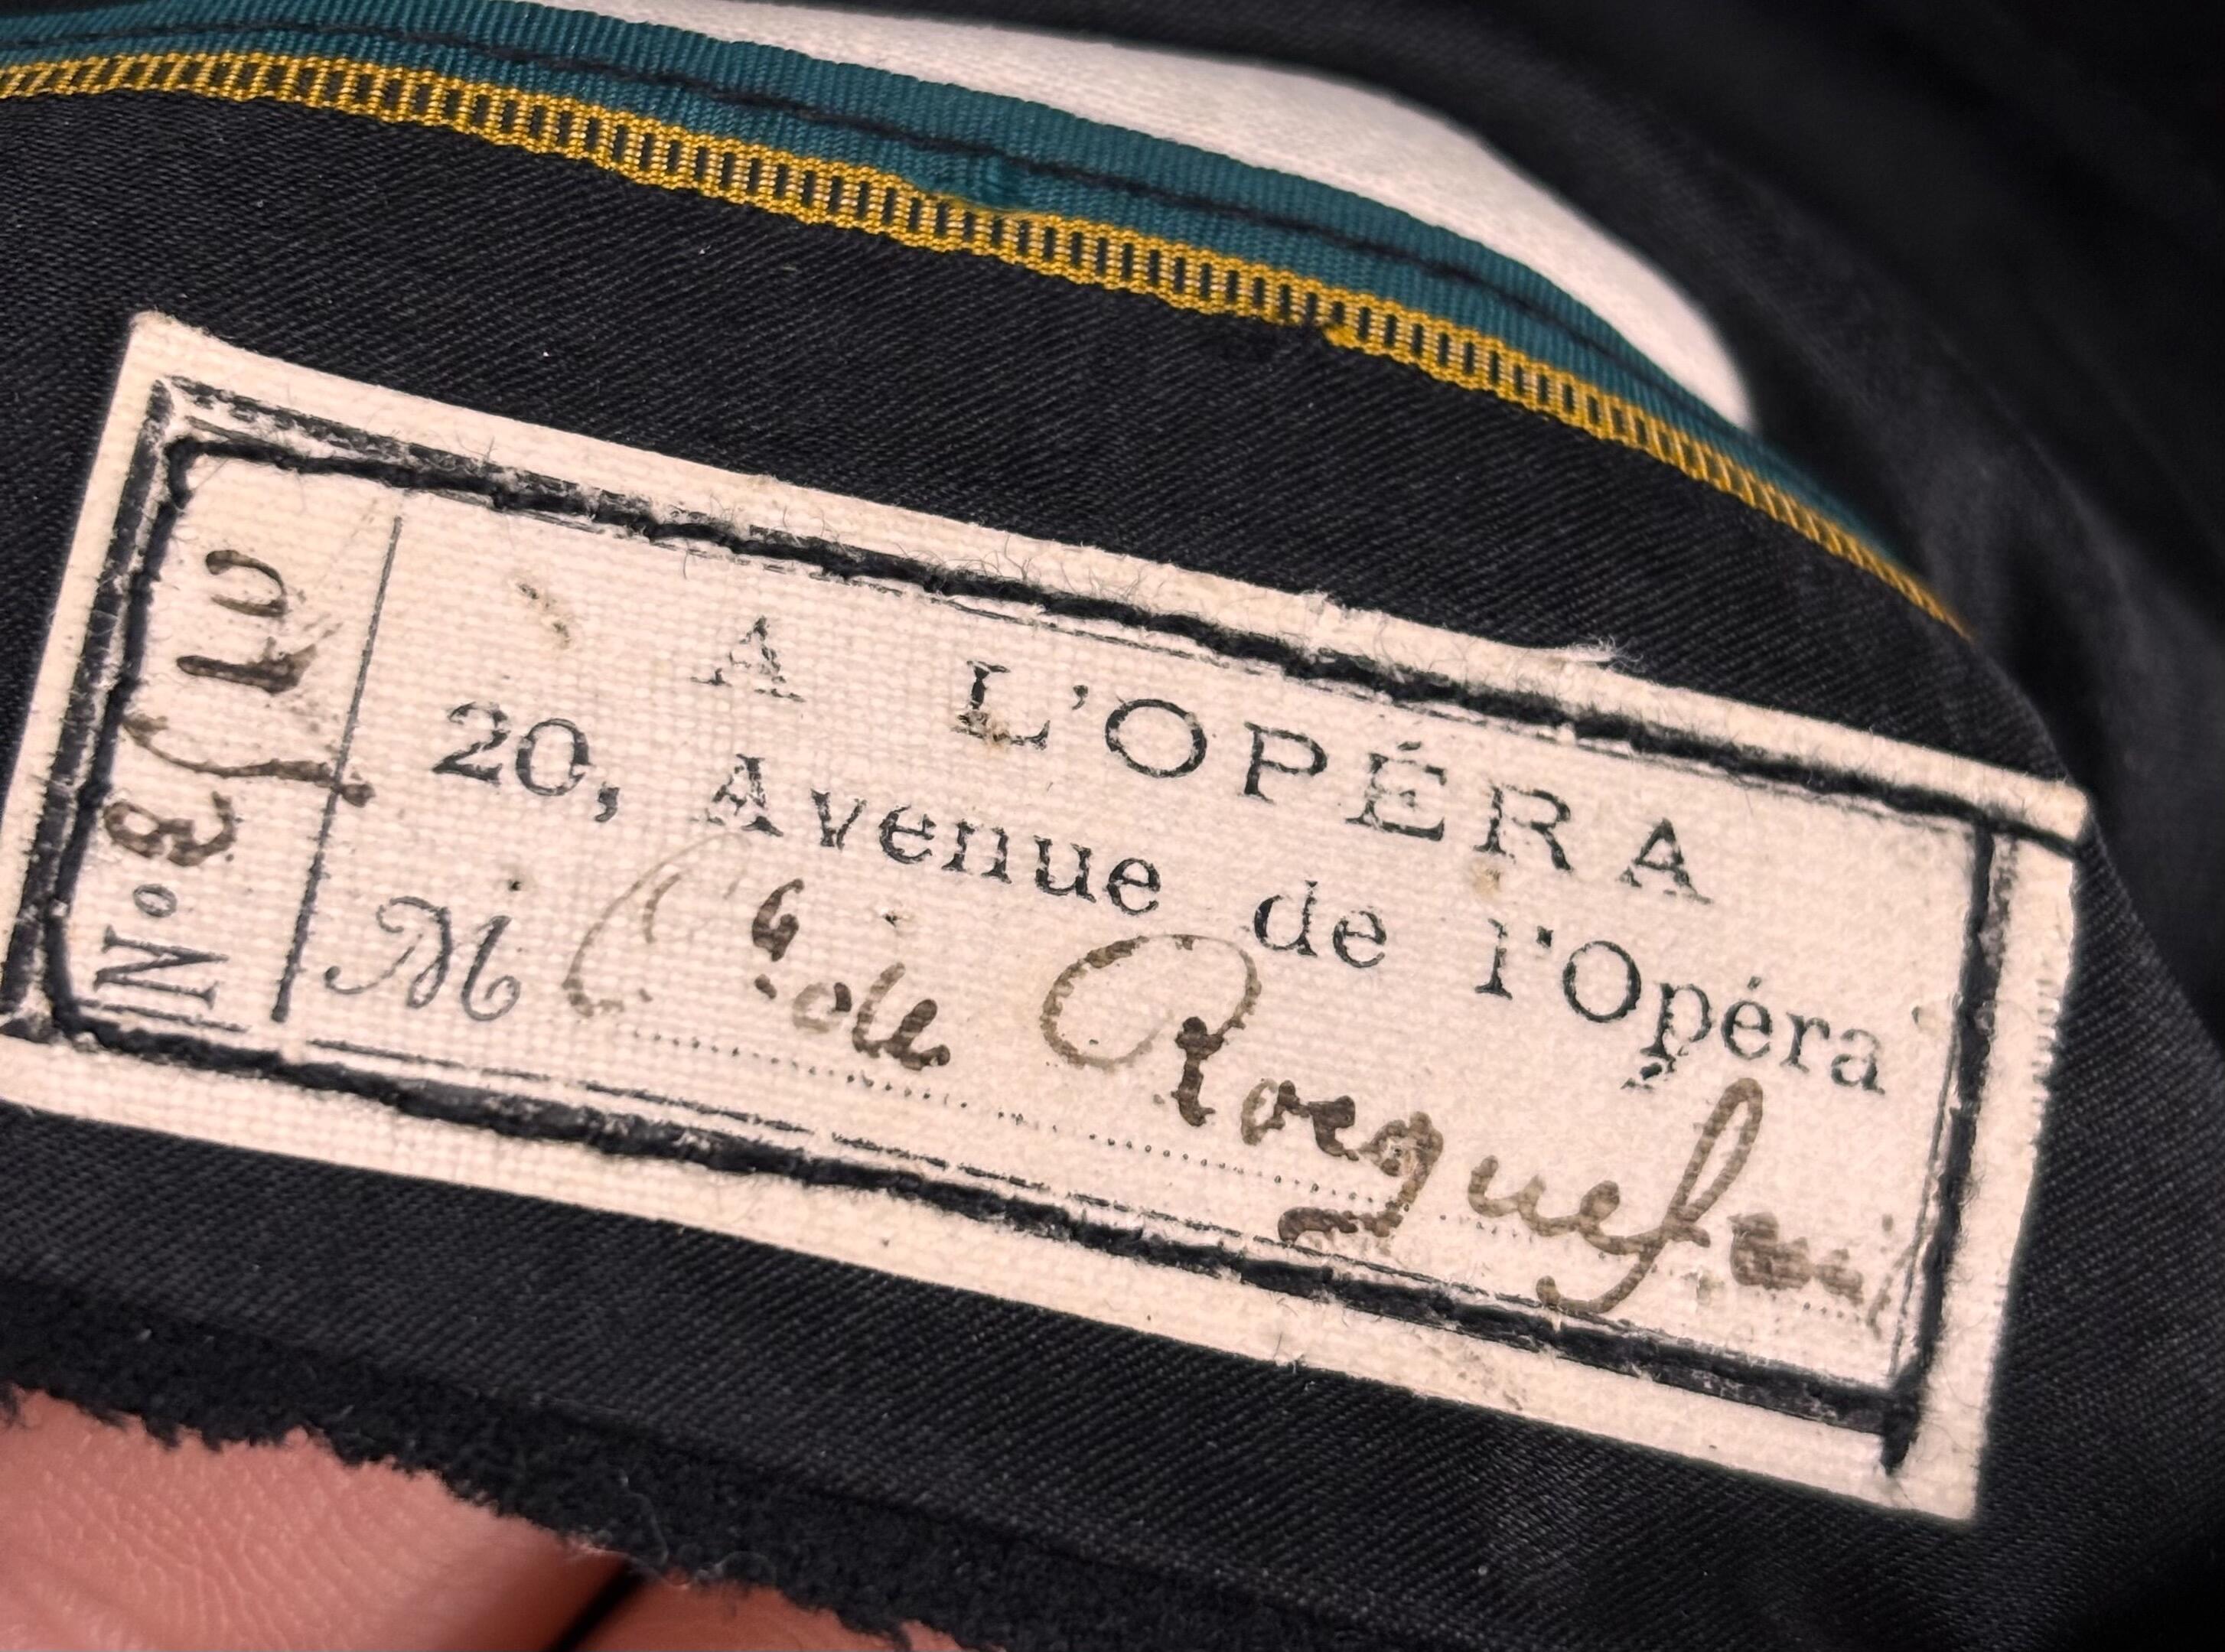 A L'OPÉRA
20, Avenue de l'Opéra
M Cte de Roquefeuil
No